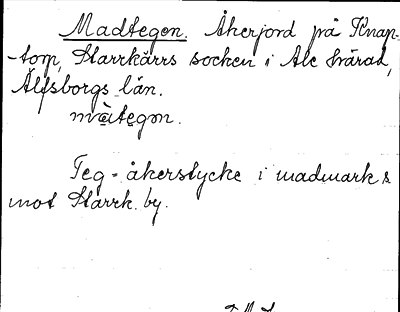 Madtegen. Åkerjord på Knap-
-torp, Starrkärrs socken i Ale härad,
Älfsborgs län.
màtegon.
Teg = åkerstycke i madmarks
mot Starrk. by.